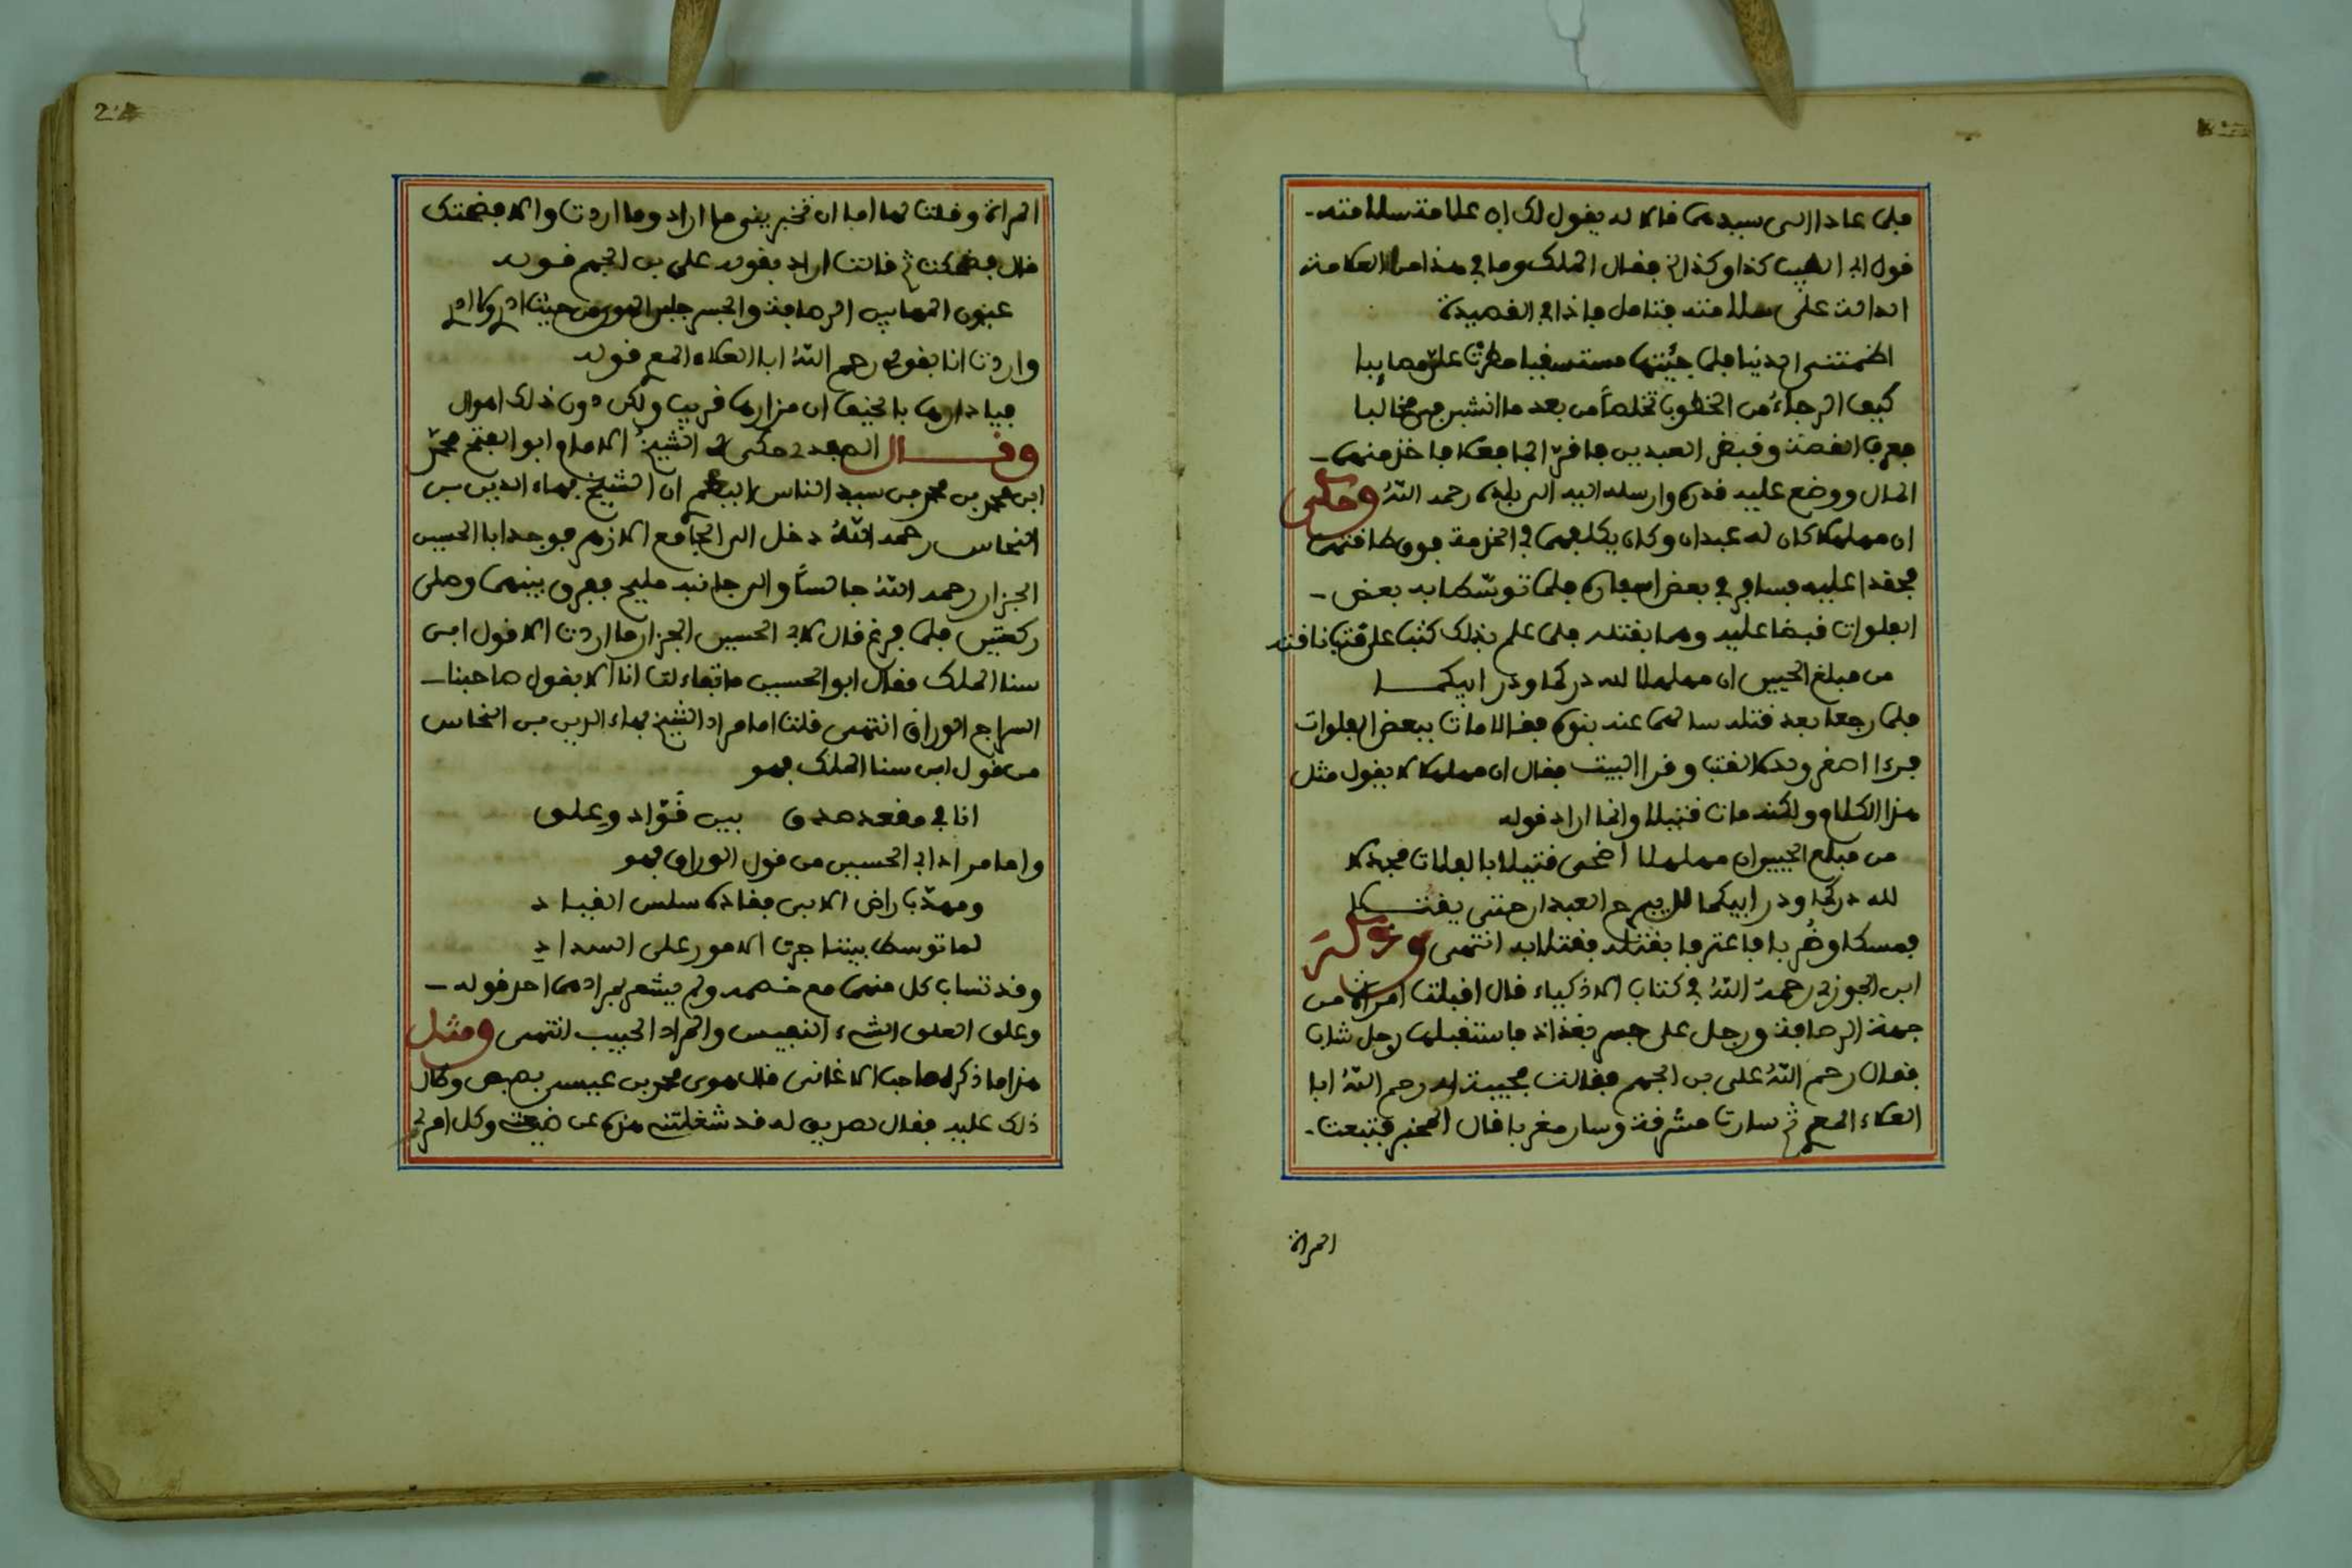 فلما عادا الى سيدهما قالا له يقول لك ان علامة سلامته
قول ابي الطيب كذا وكذا فقال الملك وما في هذا من العلامة
الدالة على سلامته فتامل فاذا في القصيدة
اظمتني الدنيا فلما جئتها مستسقيا مطرت علي مصايبا
كيف الرجاء من الخطوب تخلصاً من بعد ما انشبن في مخالبا
فعرف القصة وقبض العبدين فاقرا انهما فعلا فاخذ منهما
المال ووضع عليه قدره وارسله اليه الى بلده رحمه الله وحكى
ان مهلهلا كان له عبدان وكان يكلفهما في الخدمة فوق طاقتهما
فحقدا عليه فسافر في بعض اسفاره فلما توسطا به بعض
الفلوات قبضا عليه وهما بقتله فلما علم بذلك كتب على قتب ناقته
من مبلغ الحيين ان مهلهلا لله دركما ودر ابيكما
فلما رجعا بعد قتله سالهما عنه بنوه فقالا مات ببعض الفلوات
فرءا اصغر ولده القتب وقرا البيت فقال ان مهلهلا لا يقول مثل
هذا الكلام ولكنه مات قتيلا وانما اراد قوله
من مبلغ الحيين ان مهلهلا اضحى قتيلا بالفلات مجدلا
لله دركما ودر ابيكما لا يبرح العبدان حتى يقتلا
فمسكا وضربا فاعترفا بقتله فقتلا به انتهى وذكر
ابن الجوزي رحمه الله في كتاب الاذكياء قال اقبلت امراة من
جهة الرصافة ورجل على جسر بغداد فاستقبلها رجل شاب
فقال رحم الله علي بن الجهم فقالت مجيبة له رحم الله ابا
العلاء المعري ثم سارت مشرفة وسار مغربا قال المخبر فتبعت
المراة
المراة وقلت لها اما ان تخبريني ما اراد وما اردت والا فضحتك
قال فضحكت ثم قالت اراد بقوله علي بن الجهم قوله
عيون المها بين الرصافة والجسر جلبن الهوى من حيث ادري ولا ادري
واردت انا بقولي رحم الله ابا العلاء المعري قوله
فيا دارها بالخيف ان مزارها قريب ولكن دون ذلك اهوال
وقال الصفدي حكى لي الشيخ الامام ابو الفتح محمد
ابن محمد بن محمد بن سيد الناس اليعمري ان الشيخ بهاء الدين بن
النحاس رحمه الله دخل الى الجامع الازهر فوجد ابا الحسين
الجزار رحمه الله جالساً والى جانبه مليح ففرق بينهما وصلى
ركعتين فلما فرغ قال لابي الحسين الجزار ما اردت الا قول ابن
سنا الملك فقال ابو الحسين ما تفاءلت انا الا بقول صاحبنا
السراج الوراق انتهى قلت اما مراد الشيخ بهاء الدين بن النحاس
من قول ابن سنا الملك فهو
انا في مقعد صدق بين قوّاد وعلق
واما مراد ابي الحسين من قول الوراق فهو
ومهذّب راض الابي فقاده سلس القياد
لما توسط بيننا جرت الامور على السداد
وقد تساب كل منهما مع خصمه ولم يشعر بمرادهما احد قوله
وعلق العلق الشيء النفيس والمراد الحبيب انتهى ومثل
هذا ما ذكره صاحب الاغاني قال هوى محمد بن عيسى بصبص وطال
ذلك عليه فقال لصديق له قد شغلتني هذه عن ضيعتي وكل امري